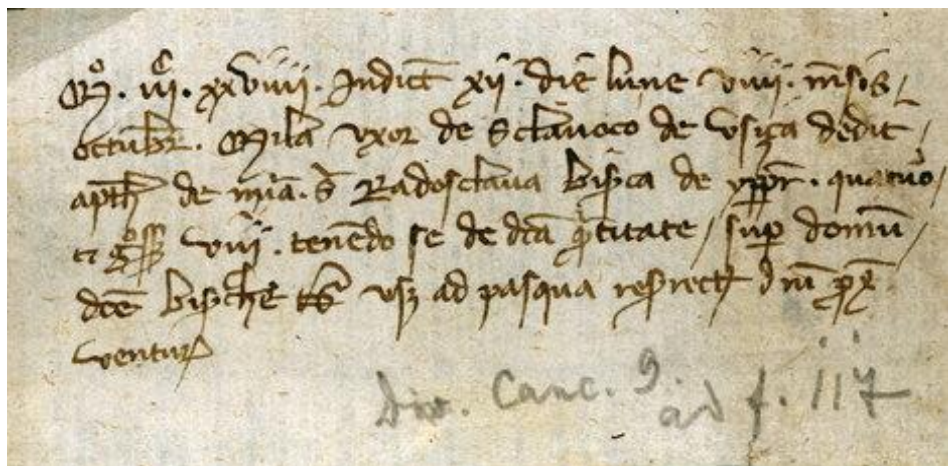 M°. iiiᶜ. xxviiii. Indict xii. die lune viiii. msis
octubr. Mila uxor de Sclavoco de Usiça dedit
de mia. Radosclava bisca de yppr. quatuo
et gross viii. tenedo se de dca qtitate / sup domu
dce bische usq ad pasqua resrect dni prox
ventur
Div. Canc. 9.
ad f. 117